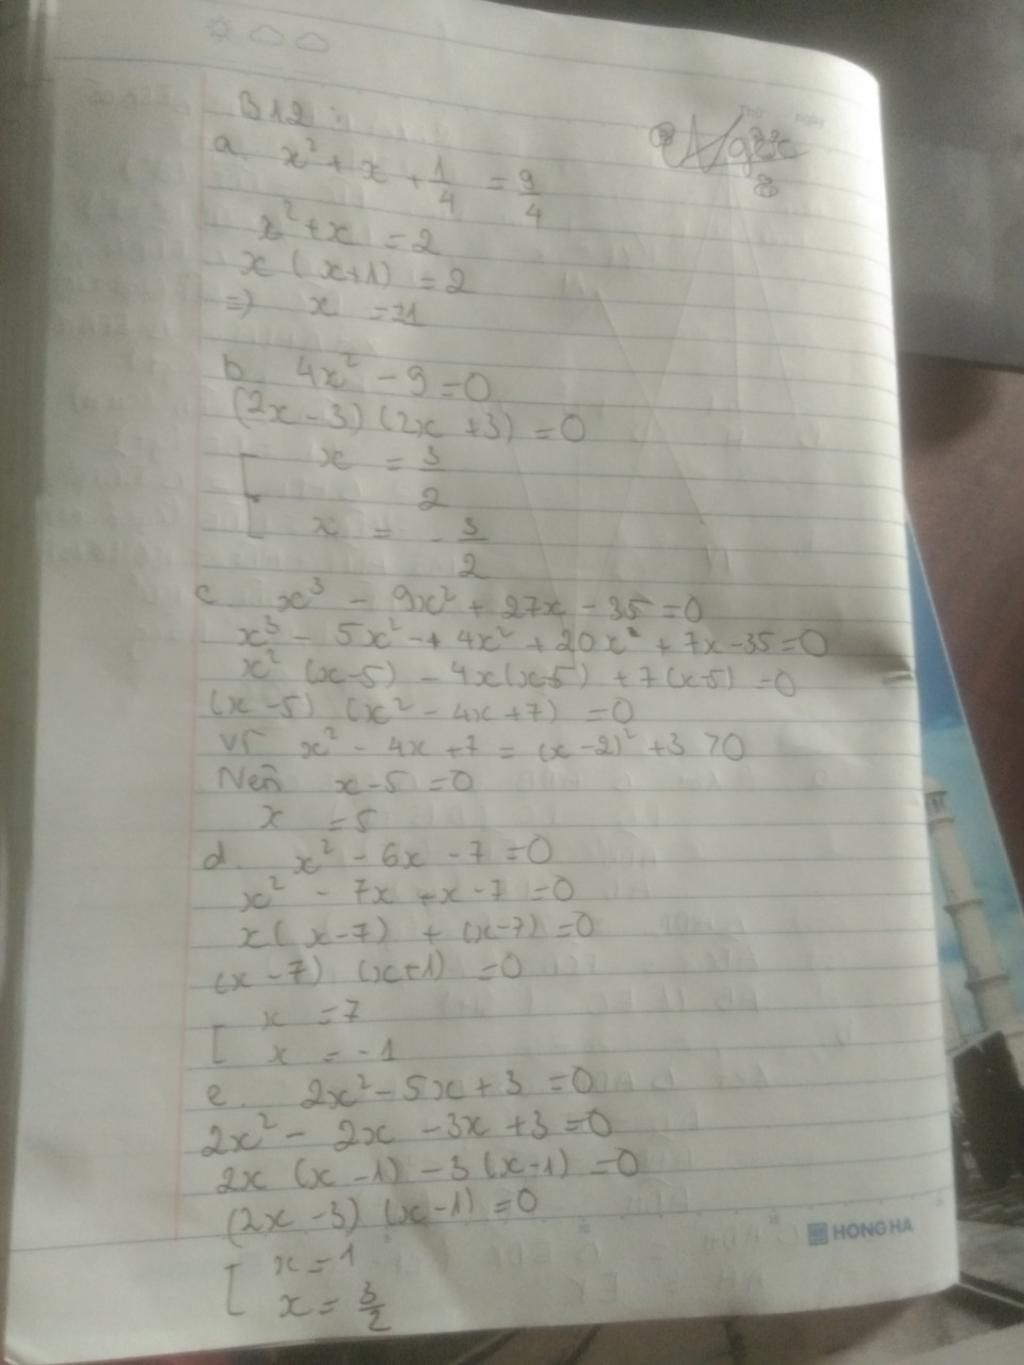 B12:
a. x² + x + 1/4 = 9/4
x² + x = 2
x (x+1) = 2
=> x = ±1
b. 4x² - 9 = 0
(2x - 3) (2x + 3) = 0
[ x = 3/2
[ x = - 3/2
c. x³ - 9x² + 27x - 35 = 0
x³ - 5x² - 4x² + 20x + 7x - 35 = 0
x² (x-5) - 4x(x-5) + 7(x-5) = 0
(x-5) (x² - 4x + 7) = 0
Vì x² - 4x + 7 = (x-2)² + 3 > 0
Nên x - 5 = 0
x = 5
d. x² - 6x - 7 = 0
x² - 7x + x - 7 = 0
x(x-7) + (x-7) = 0
(x-7) (x+1) = 0
[ x = 7
[ x = -1
e. 2x² - 5x + 3 = 0
2x² - 2x - 3x + 3 = 0
2x (x-1) - 3(x-1) = 0
(2x - 3) (x-1) = 0
[ x = 1
[ x = 3/2
HONG HA